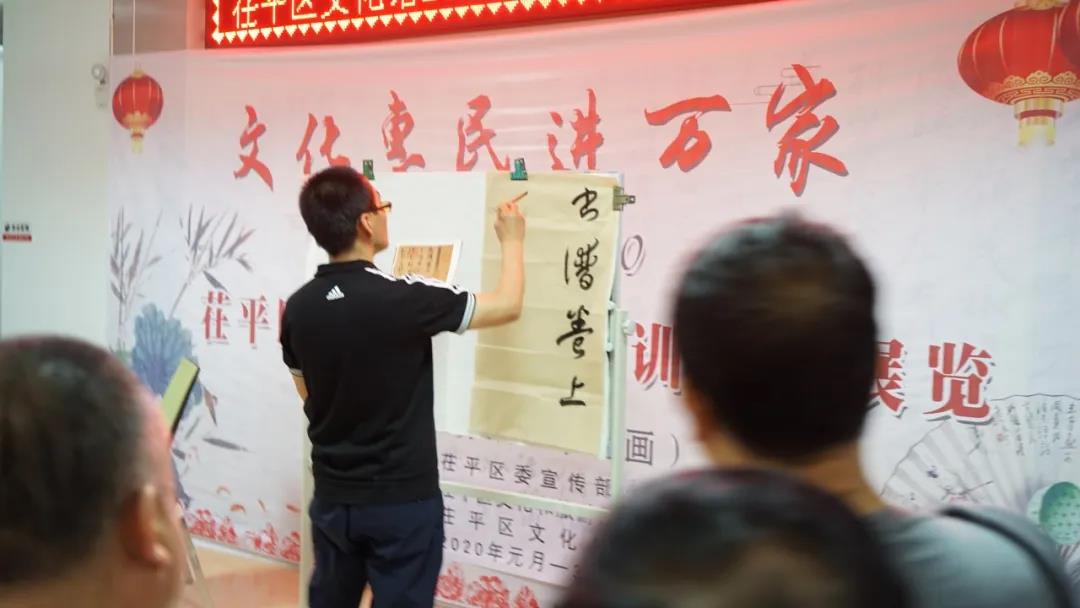 茌平区文化
文化惠民进万家
书谱卷上
0
茌平
训
展览
画）
茌平区委宣传部
茌平区文化和旅
茌平区文化
2020年元月一